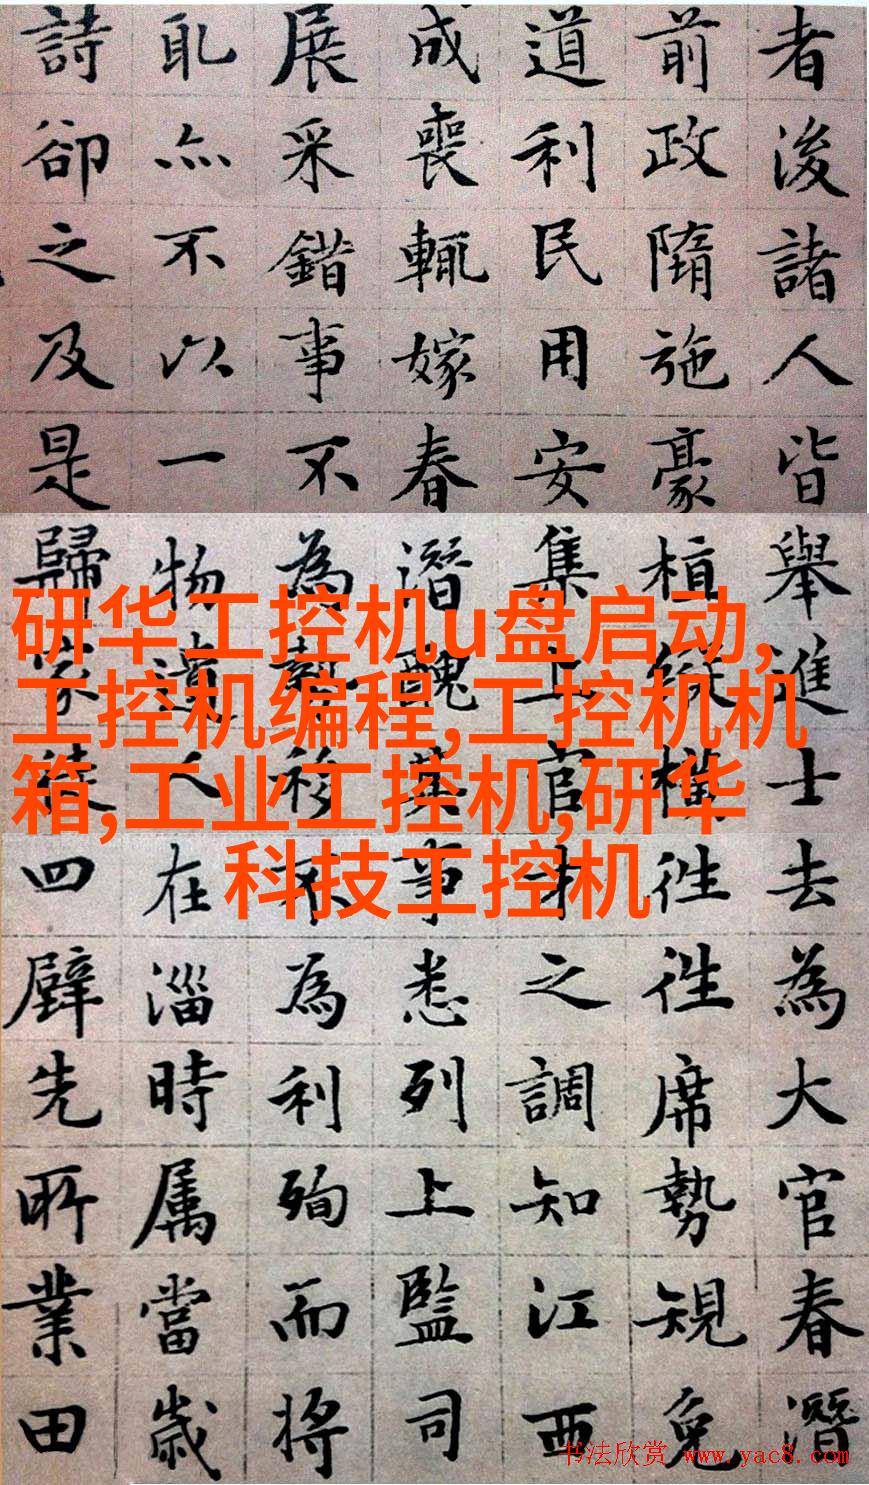 者後諸人皆舉進士去為大官春潛
前政隋施豪植縱橫往往席勢規免
道利民用安集上官才之調知江西
成喪輒嫁春潛醜英事悉列上監司
展采錯事不為勢移不為利殉而將
耴亦不以一物遺人在淄時属當歲
詩卻之及是歸家徒四壁先所業田
研华工控机u盘启动,
工控机编程,工控机机
箱,工业工控机,研华
科技工控机
书法欣赏 www.yac8.com